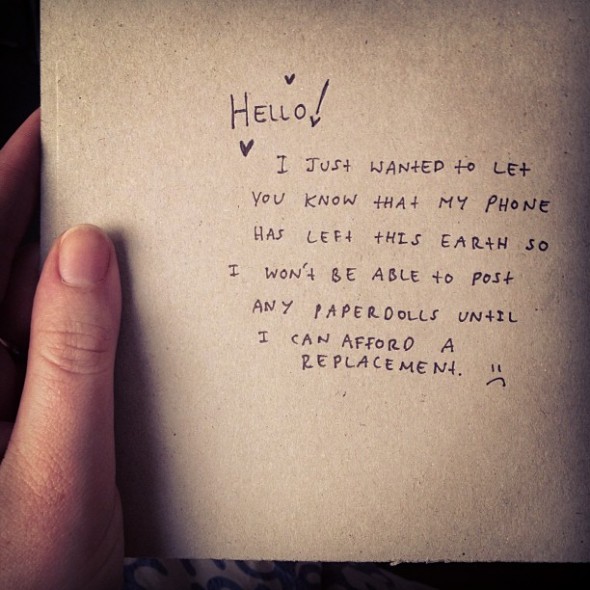 HELLO!
I JUST WANTED TO LET
YOU KNOW THAT MY PHONE
HAS LEFT THIS EARTH SO
I WON'T BE ABLE TO POST
ANY PAPERDOLLS UNTIL
I CAN AFFORD A
REPLACEMENT. :(